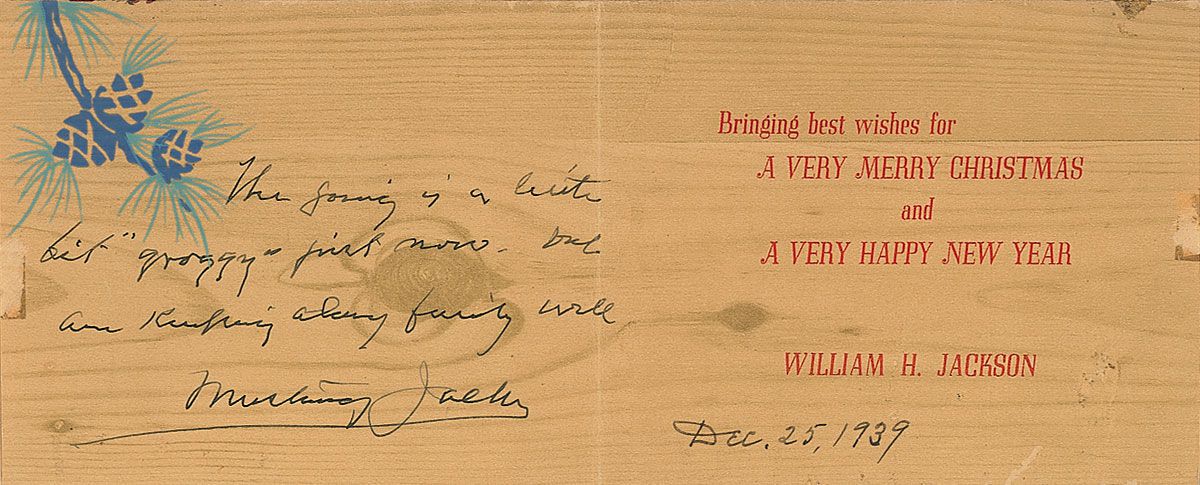 The going is a little
bit "groggy" just now - but
am keeping along fairly well
Mustang Jack
Bringing best wishes for
A VERY MERRY CHRISTMAS
and
A VERY HAPPY NEW YEAR
WILLIAM H. JACKSON
Dec. 25, 1939